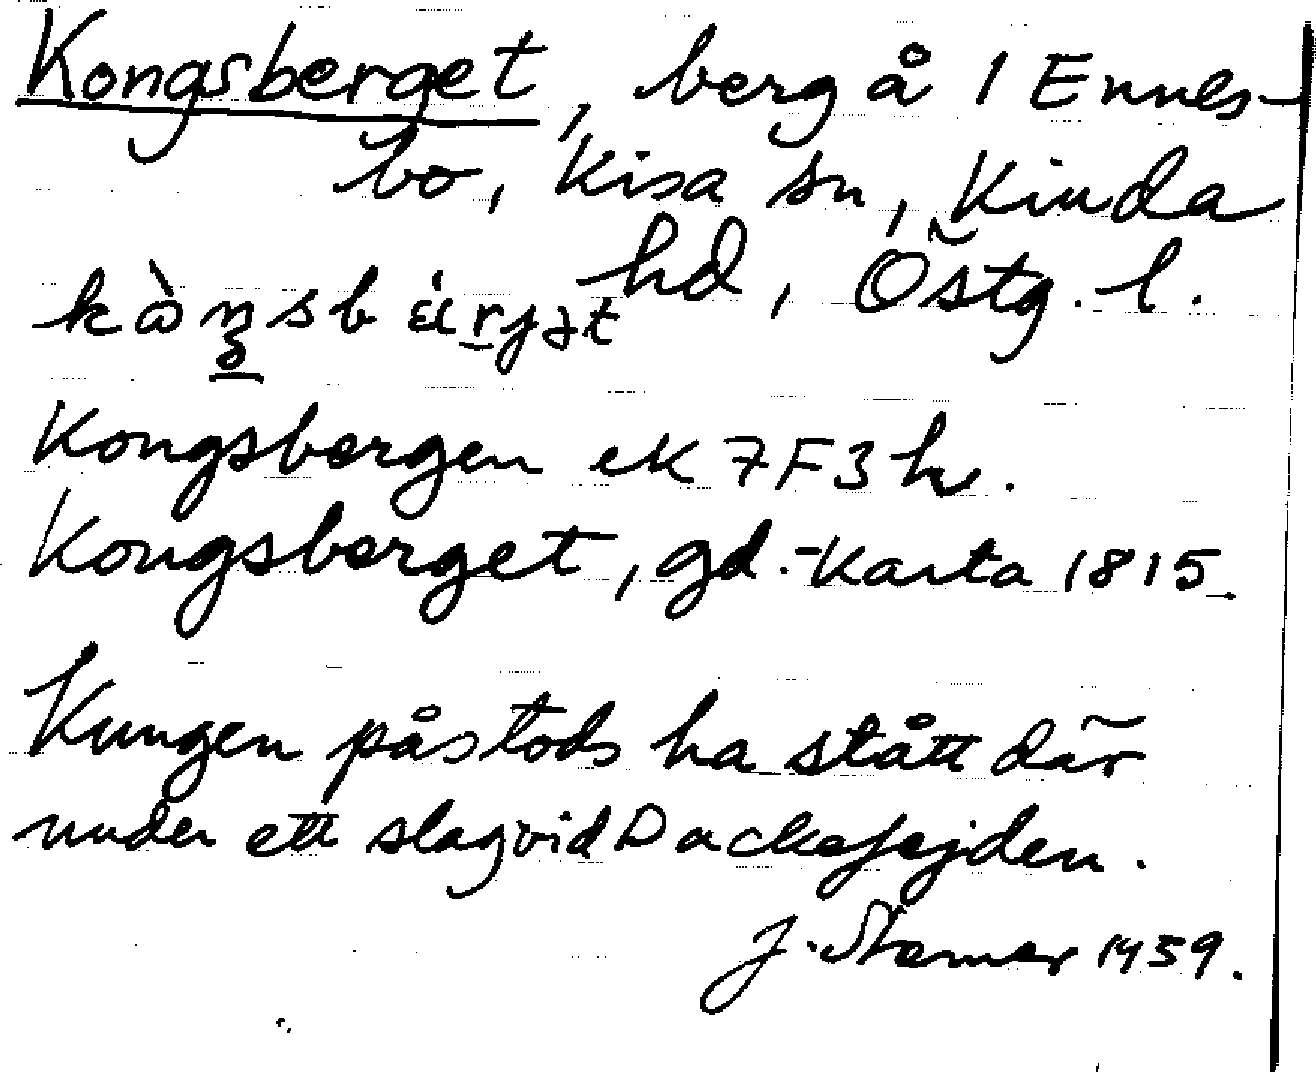 Kongsberget, berg å 1 Ennes-
bo, Kisa sn, Kinda
hd, Östg. l.
Kongsbergen ek 7F3h.
Kongsberget, gd.-karta 1815
Kungen påstods ha stått där
under ett slag vid Dackefejden.
J. Stamer 1959.